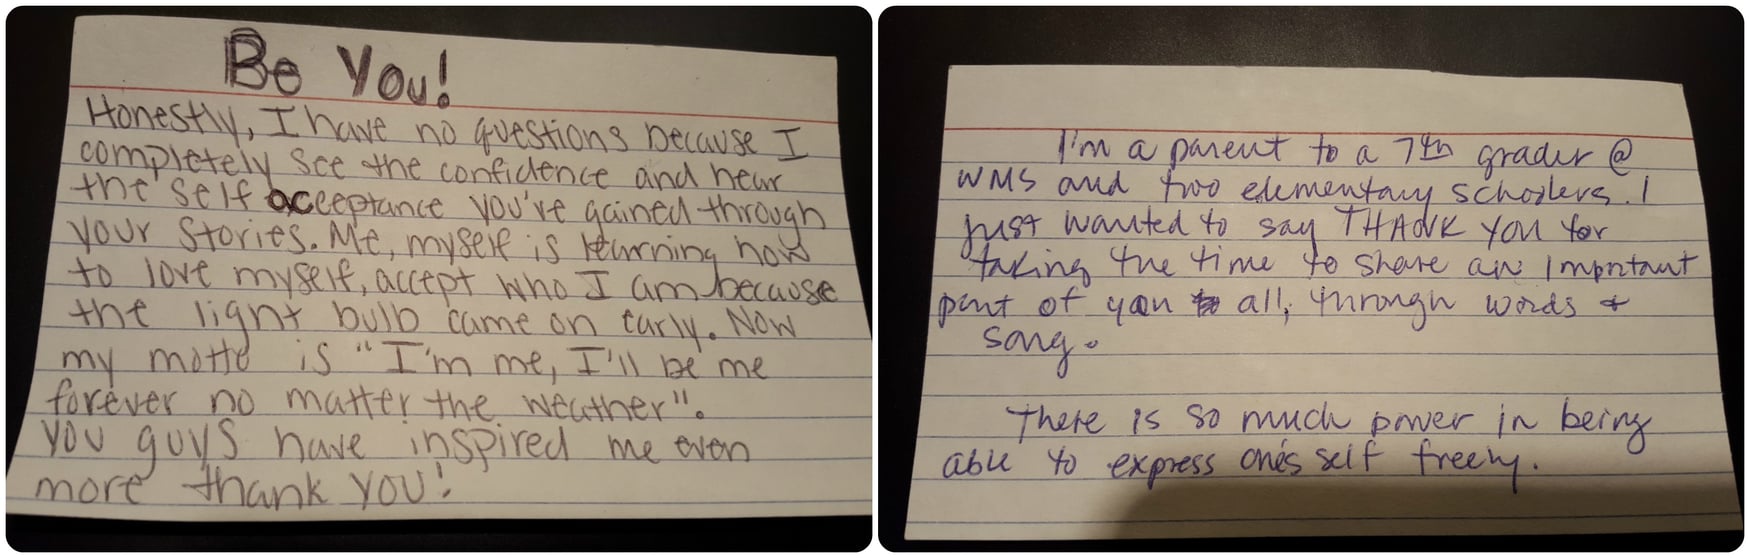 Be You!
Honestly, I have no questions because I
completely see the confidence and hear
the self acceptance you've gained through
your stories. Me, myself is learning how
to love myself, accept who I am because
the light bulb came on early. Now
my motto is "I'm me, I'll be me
forever no matter the weather".
you guys have inspired me even
more thank you!
I'm a parent to a 7th grader @
WMS and two elementary schoolers. I
just wanted to say THANK YOU for
taking the time to share an important
part of you all; through words &
song.
There is so much power in being
able to express one's self freely.